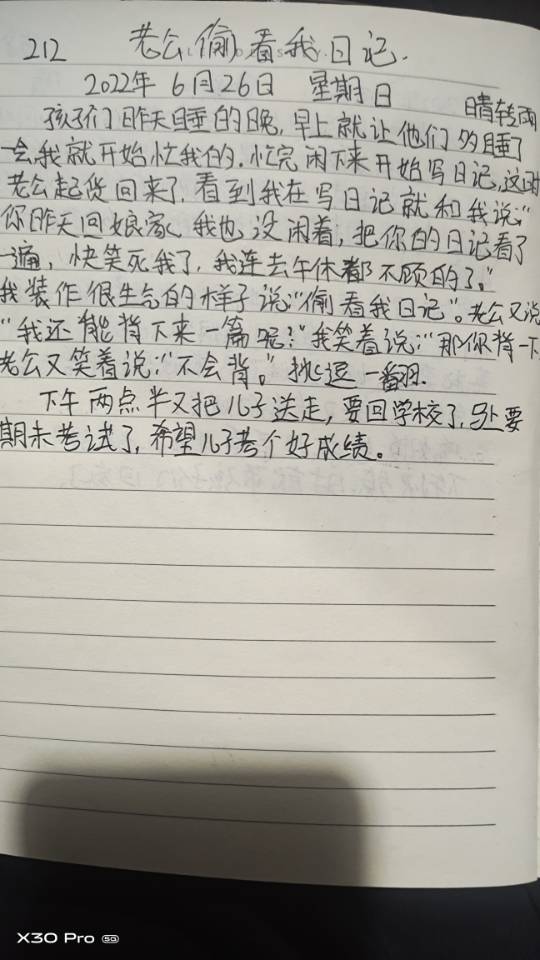 212 老公偷看我日记.
2022年 6月26日 星期日 晴转雨
孩子们昨天睡的晚,早上就让他们多睡了
一会,我就开始忙我的.忙完闲下来开始写日记,这时
老公起货回来了,看到我在写日记就和我说:“
你昨天回娘家,我也没闲着,把你的日记看了
一遍,快笑死我了,我连去午休都不顾的了。”
我装作很生气的样子说“偷看我日记”。老公又说
“我还能背下来一篇呢?”我笑着说:“那你背一下
老公又笑着说:“不会背。”挑逗一翻.
下午两点半又把儿子送走,要回学校了,马上要
期末考试了,希望儿子考个好成绩。
X30 Pro 5G